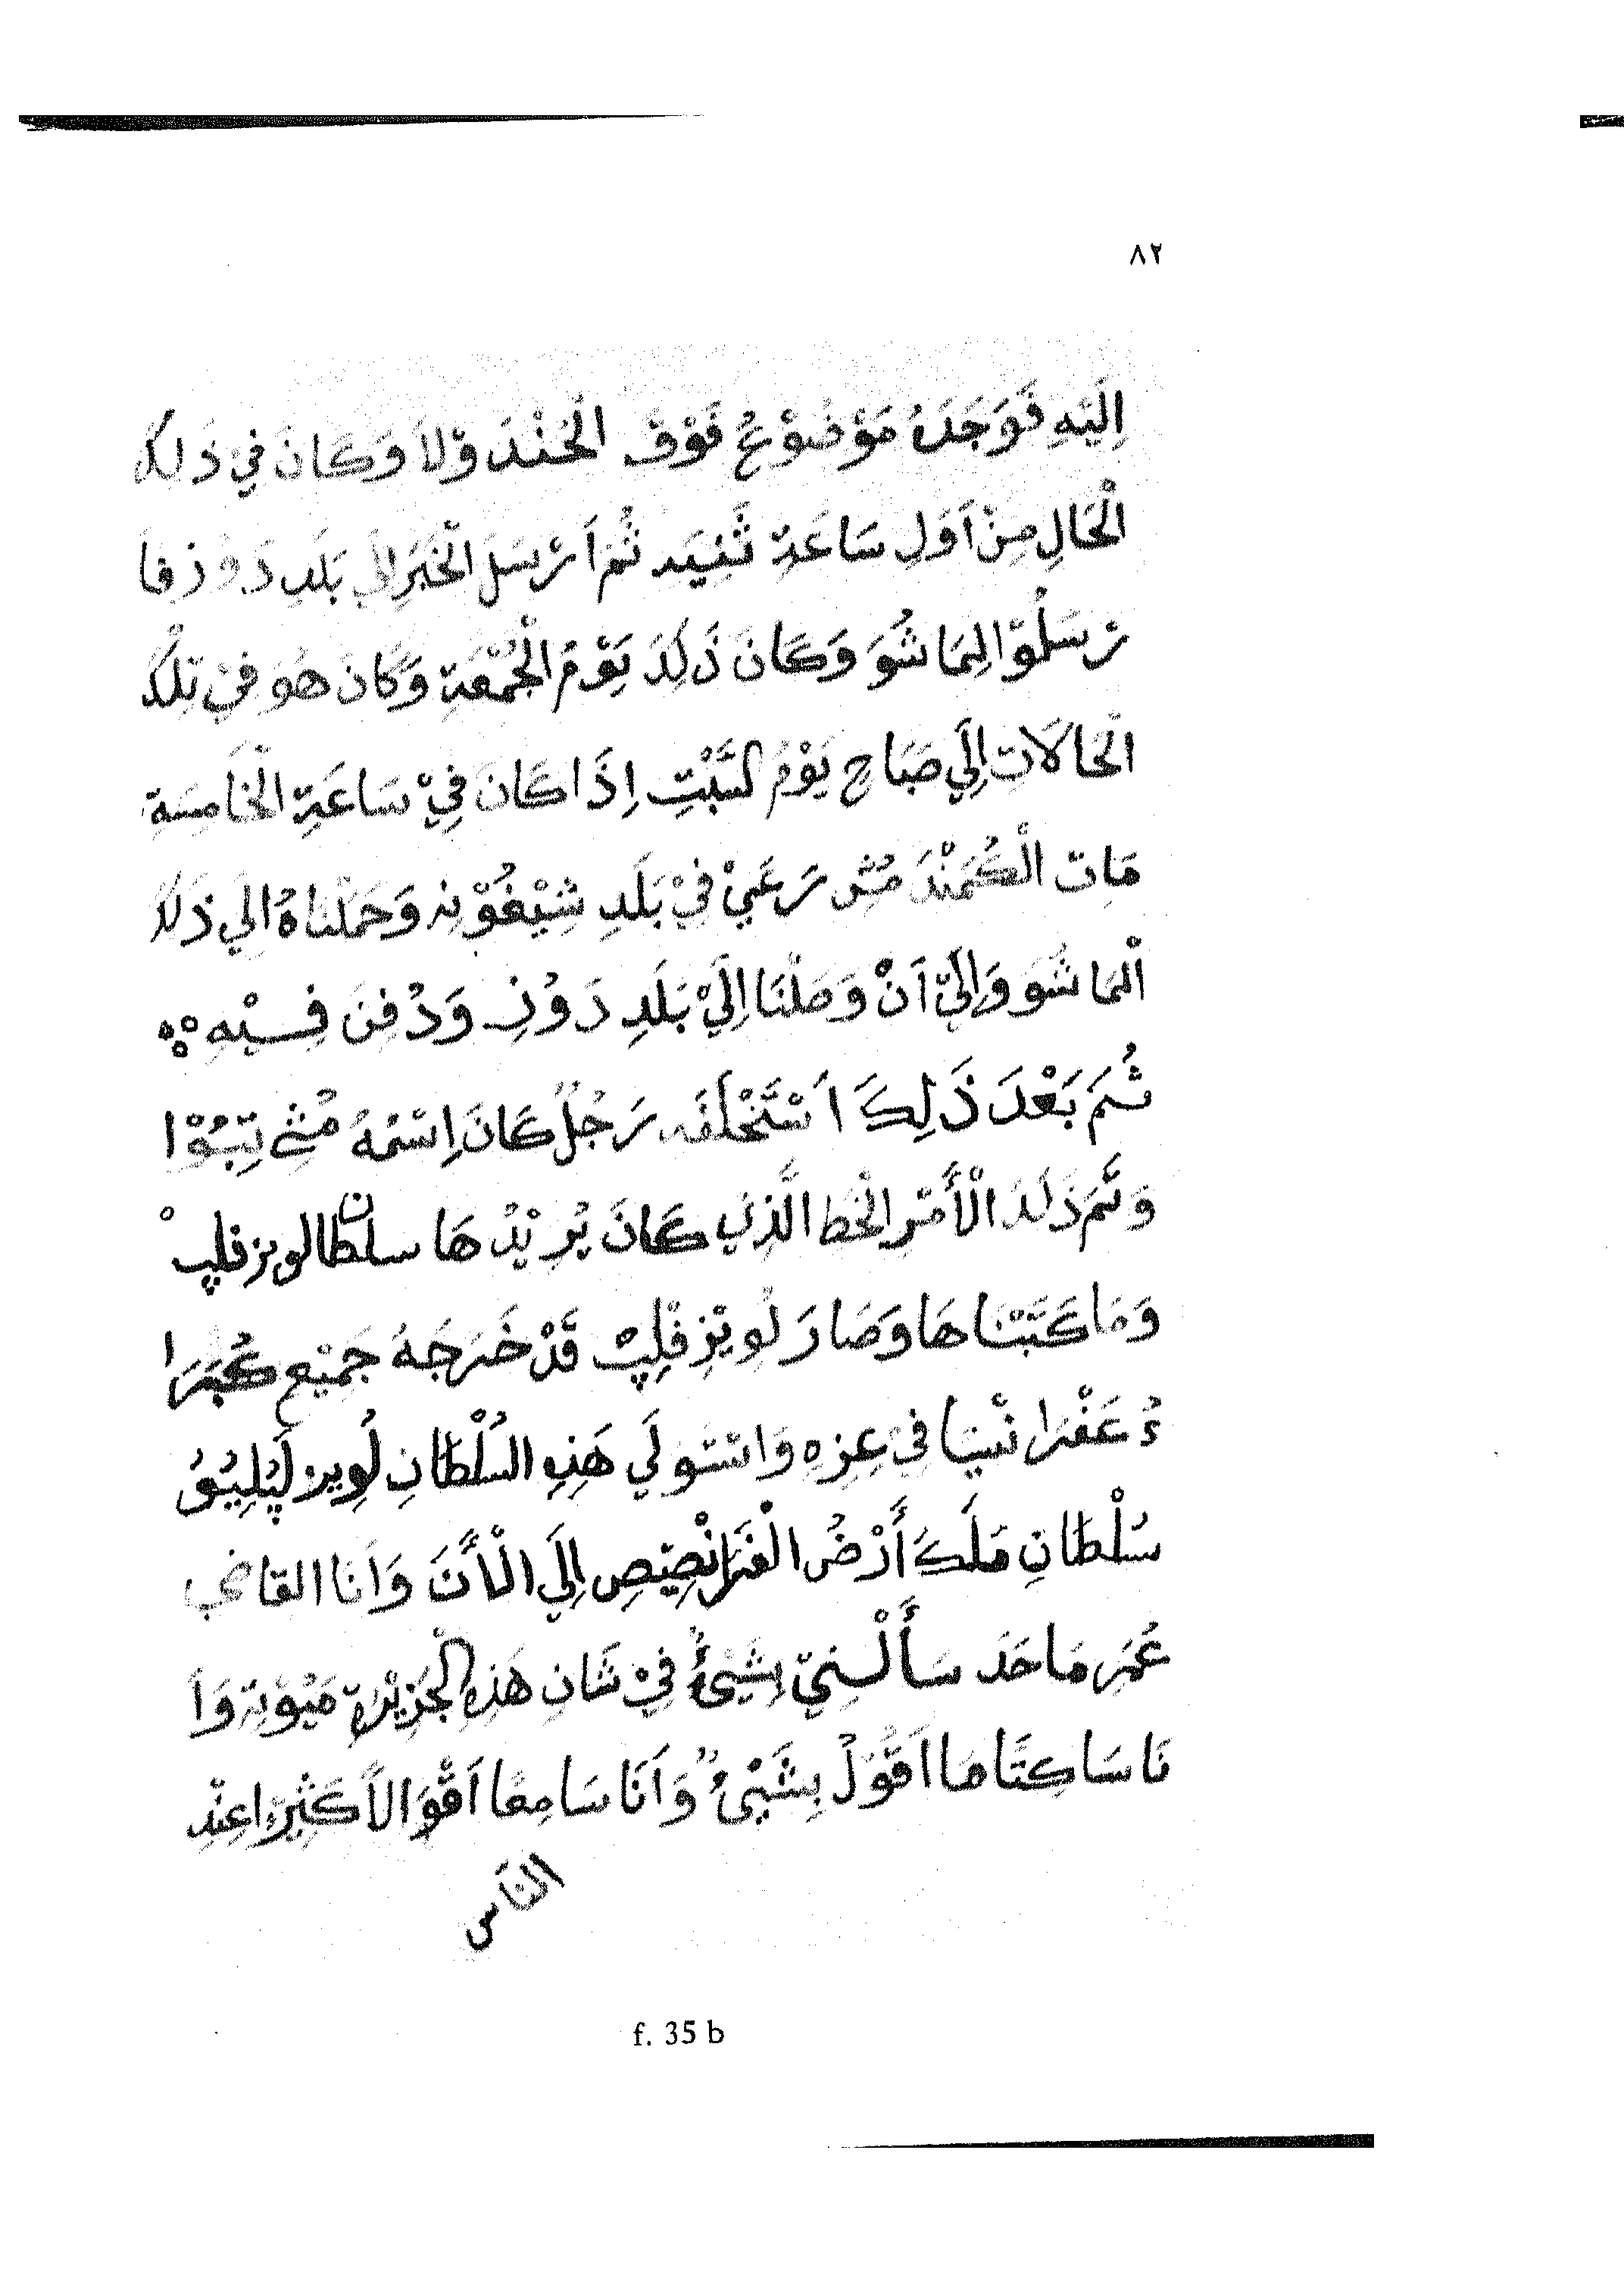 ٨٢
اِلَيْهِ فَوَجَدَهُ مَوْضُوْعُ فَوْقَ الْخُنْدَوْلاَ وَكَانَ فِيْ ذَلِكَ
الْحَالِ مِنْ اَوَلِ سَاعَةِ ثَنِيَه ثُمَ اَرْسَلَ الْخَبَرِ اِلَي بَلَدِ دَوُنِ فا
رْسَلُوْا لِمَاشُوَ وَكَانَ ذَلِكَ يَوْمُ الْجُمْعَةِ وَكَانَ هُوَ فِيْ تِلْكَ
الْحَالَاتِ اِلَي صَبَاحِ يَوْمُ لسَّبْتِ اِذَا كَانَ فِيْ سَاعَةِ الْخَامِسَةِ
مَاتَ الْكُمَنْدَ مُشِ رَعَيْ فِيْ بَلَدِ شِيْغُوْنِ وَحَمَلْنَاهُ اِلَي ذَلِكَ
الْمَاشُوَ وَاِلَيّ اَنْ وَصَلْنَا اِلَيْ بَلَدِ دَوُنِ وَدُفِنَ فِيْهِ
ثُمَ بَعْدَ ذَلِكَ اَسْتَخْلَفَه رَجُلٌ كَانَ اِسْمُهُ مُشِ تِبُوْا
وَتَمَ ذَلِكَ الْأَمْرِ الْخَط الَّذِي كَانَ يُرِيْدُهَا سلطان لويز فلپْ
وَمَا كَتَبْنَاهَا وَصَارَ لُويْزِ فْلِپْ قَدْ خَرَجَهُ جَمِيْعِ كُبَرَا
ءُ عَفْرَانْسِيَا فِيْ عِزِهِ وَاسْتَوْلَي هَذِهِ السُلْطَانِ لُوِيز نَپُلِيُوُ
سُلْطَانِ مَلَكَ أَرْضُ الْفَرَانْصِيْصِ اِلَي الْأَنَ وَاَنَا القاضي
عُمَرِ مَاحَدَ سَأَلْنِيّ بِشَيْئٍ فِيْ شَانِ هَذِهِ الْجَزِيْرَةِ مَيْوُتِه وَاَ
نَا سَاكِتًا مَا اَقُوْلُ بِشَيْئٍ وَاَنَا سَامِعًا اَقْوَالاً كَثِيْرَا عِنْدِ
النَاسِ
f. 35 b